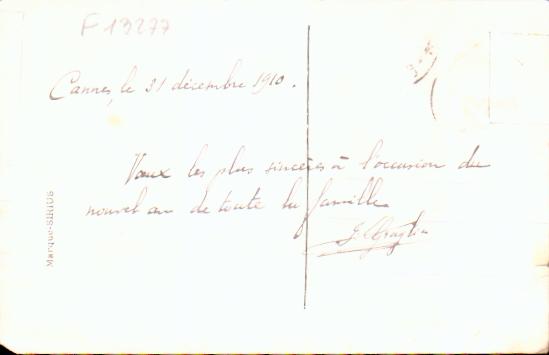 F 13277
Cannes, le 31 décembre 1910.
Vœux les plus sincères à l'occasion du
nouvel an de toute la famille
Marque-SIRIUS